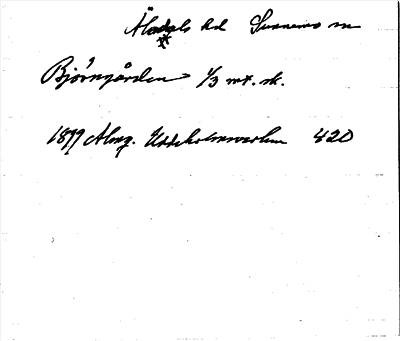 Älvdals hd Sunnemo sn
Björngården 1/3 mt. sk.
1899 Abng. Uddeholmsverken 420